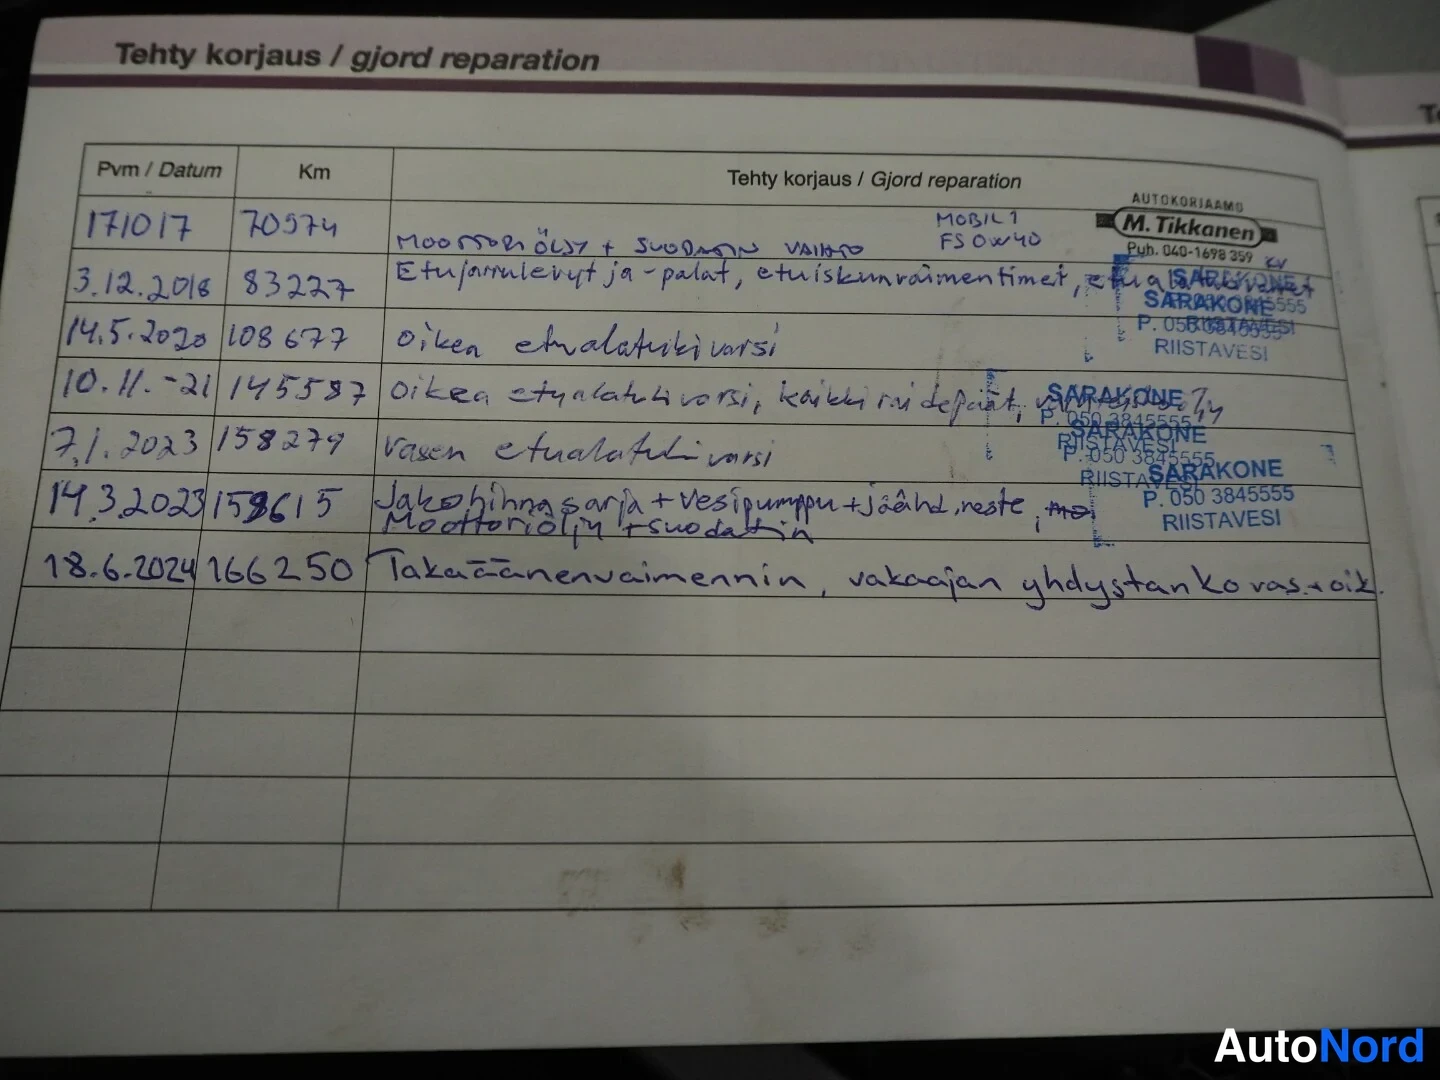 Tehty korjaus / gjord reparation
Pvm / Datum Km Tehty korjaus / Gjord reparation
AUTOKORJAAMO
M. Tikkanen
Puh. 040-1698 359
171017 70974 MOOTTORIÖLJY + SUODATIN VAIHTO MOBIL 1
FS 0W40
3.12.2018 83227 Etujarrulevyt ja -palat, etuiskunvaimentimet,
SARAKONE
SARAKONE
RIISTAVESI
14.5.2020 108677 oikea etualatukivarsi
10.11.-21 145587 oikea etualatukivarsi, kaikki raidepäät,
SARAKONE
P. 050 3845555
SARAKONE
RIISTAVESI
P. 050 3845555
RIISTAVESI
7.1.2023 158279 vasen etualatukivarsi
SARAKONE
P. 050 3845555
RIISTAVESI
14.3.2023 159615 Jakohihnasarja + vesipumppu + jäähd.neste,
Moottoriöljy + suodatin
18.6.2024 166250 Takaäänenvaimennin, vakaajan yhdystanko vas.+oik.
AutoNord